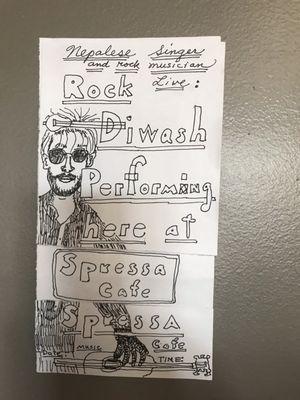 Nepalese Singer
and rock musician
Rock Live:
Diwash
Performing
here at
Spressa
Cafe
Spressa
Cafe
Date MUSIC TIME